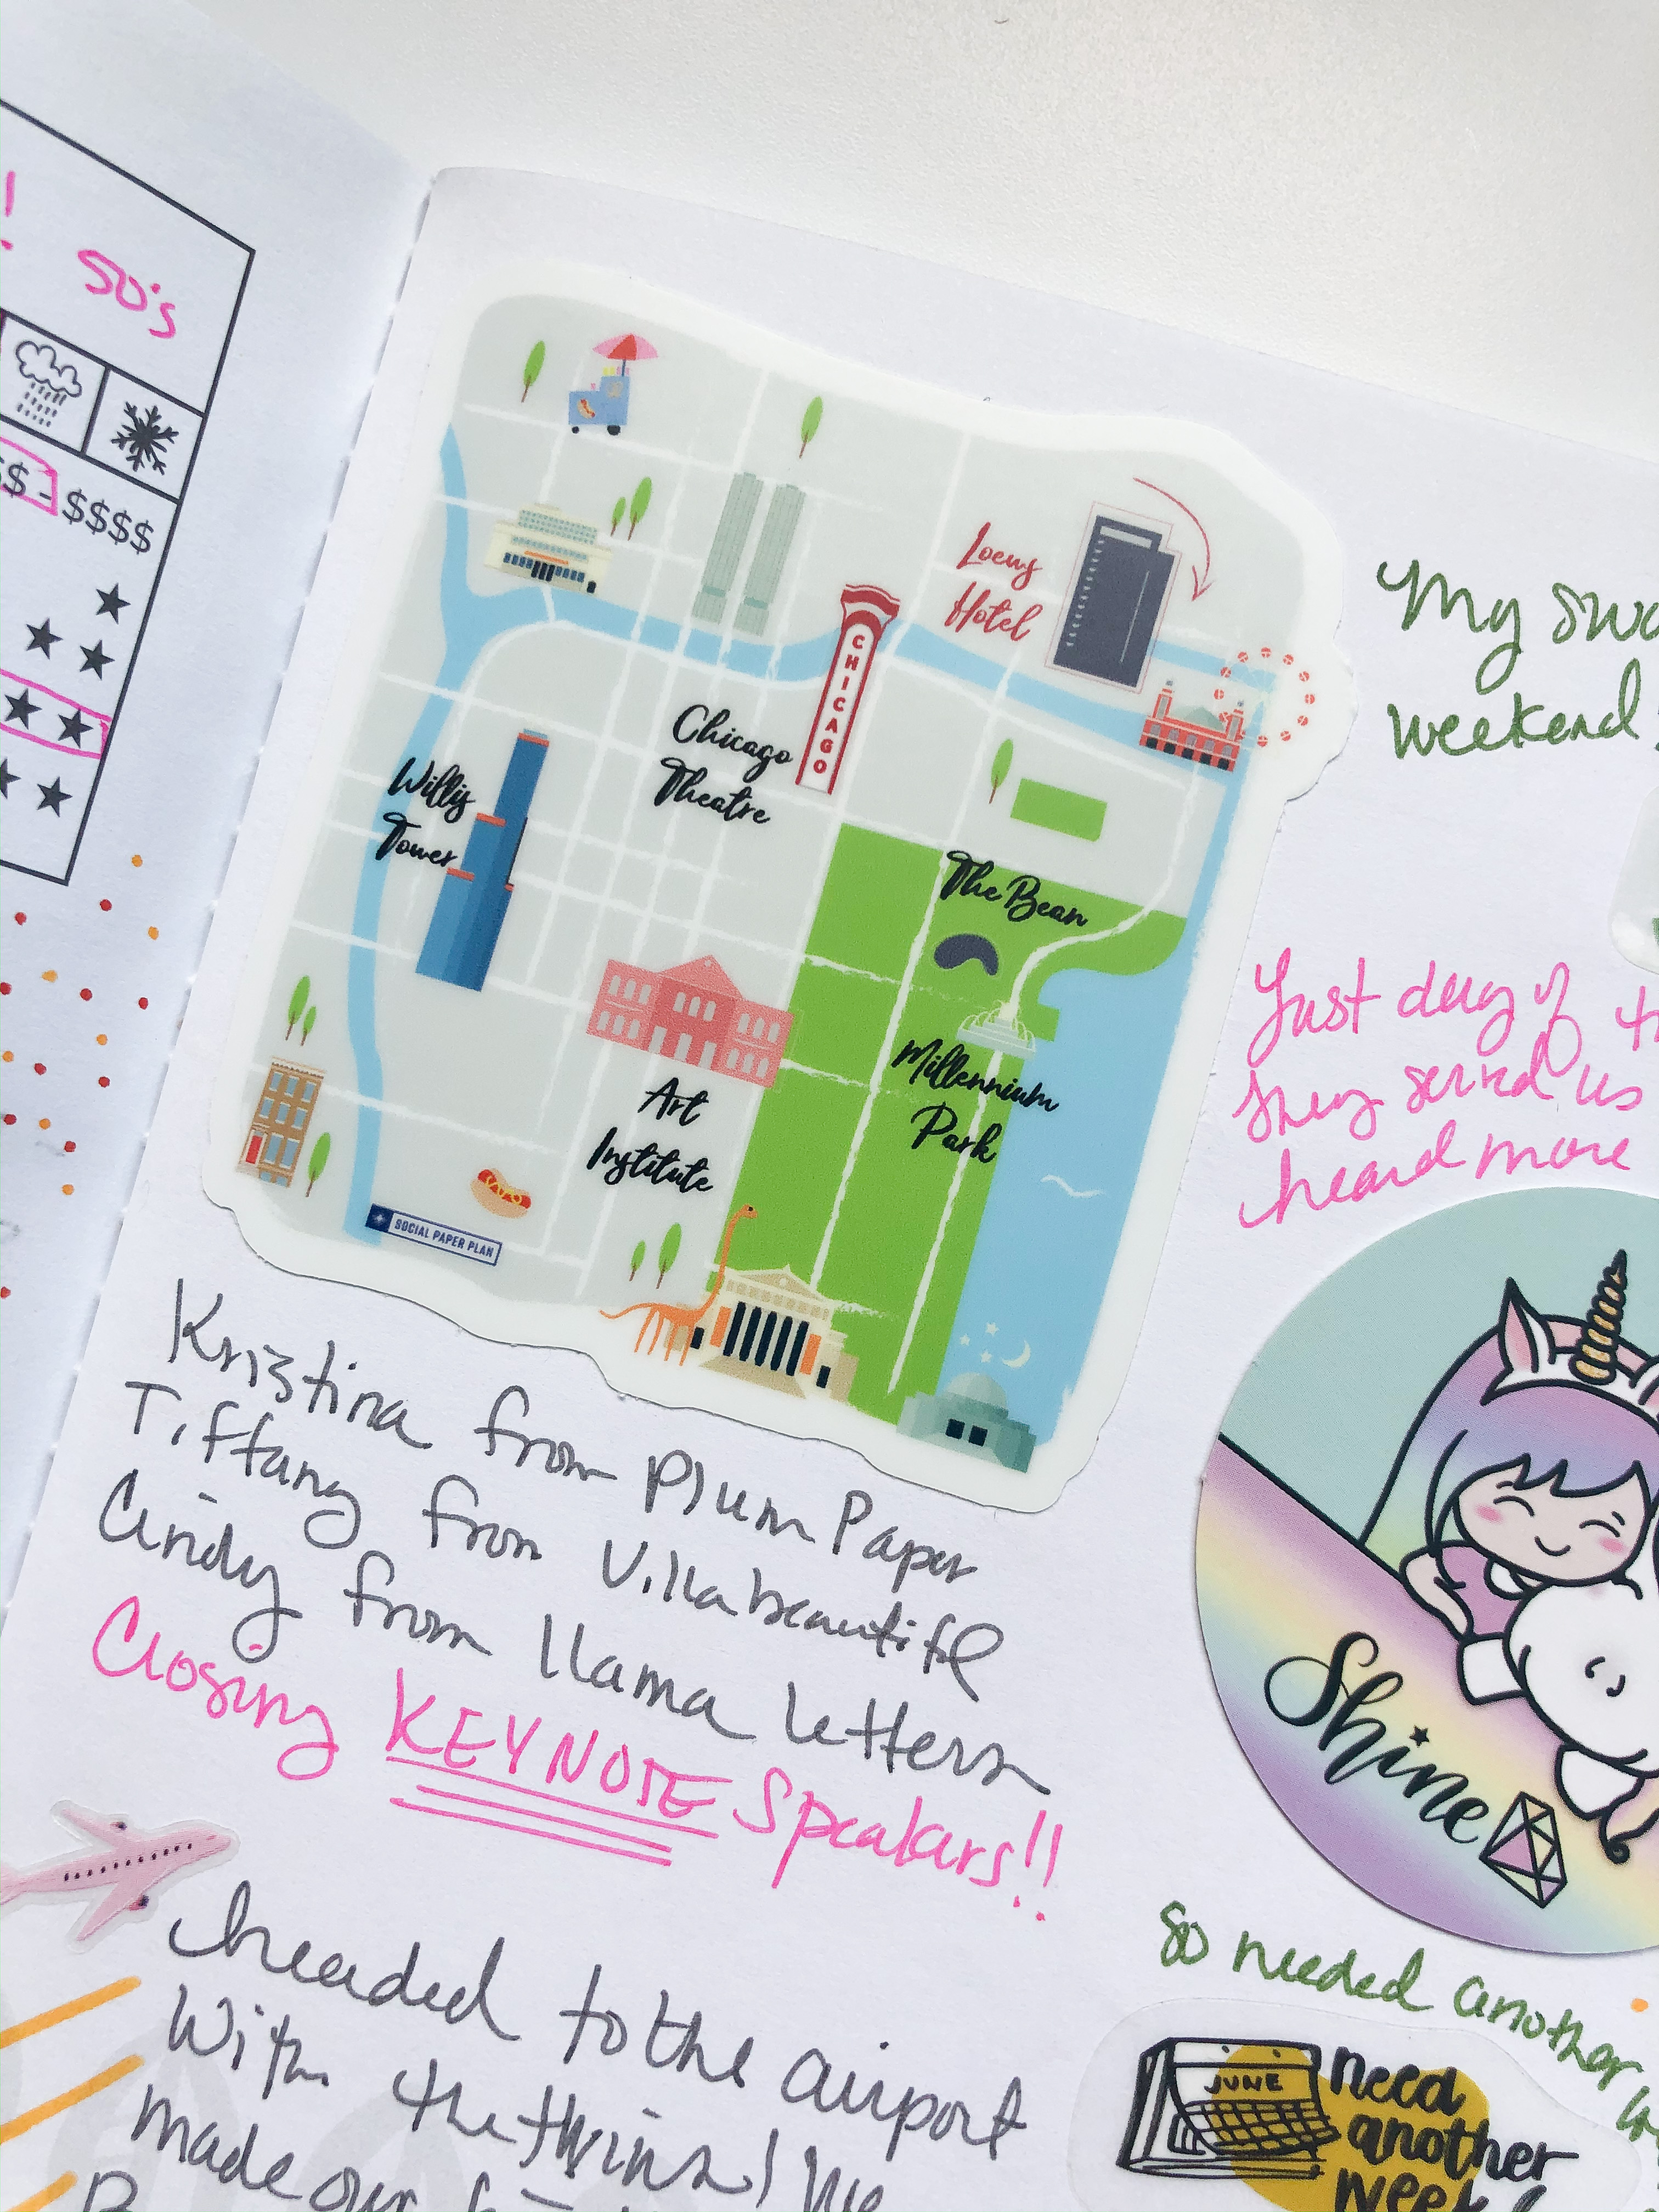 50's
$$ - $$$$
Loews
Hotel
CHICAGO
Chicago
Theatre
Willis
Tower
The Bean
Millennium
Park
Art
Institute
SOCIAL PAPER PLAN
Kristina from Plum Paper
Tiffany from Villabeautifl
Cindy from llama letters
Closing KEYNOTE Speakers!!
headed to the airport
With the twins! We
made our
My
weekend
Last day of
they served us
heard more
Shine
So needed another
JUNE
need
another
week